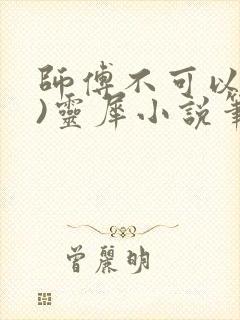 師傅不可以
)靈犀小説筆
曾麗明